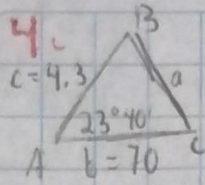 4.
B
c = 4.3
a
23° 40'
A
C
b = 70